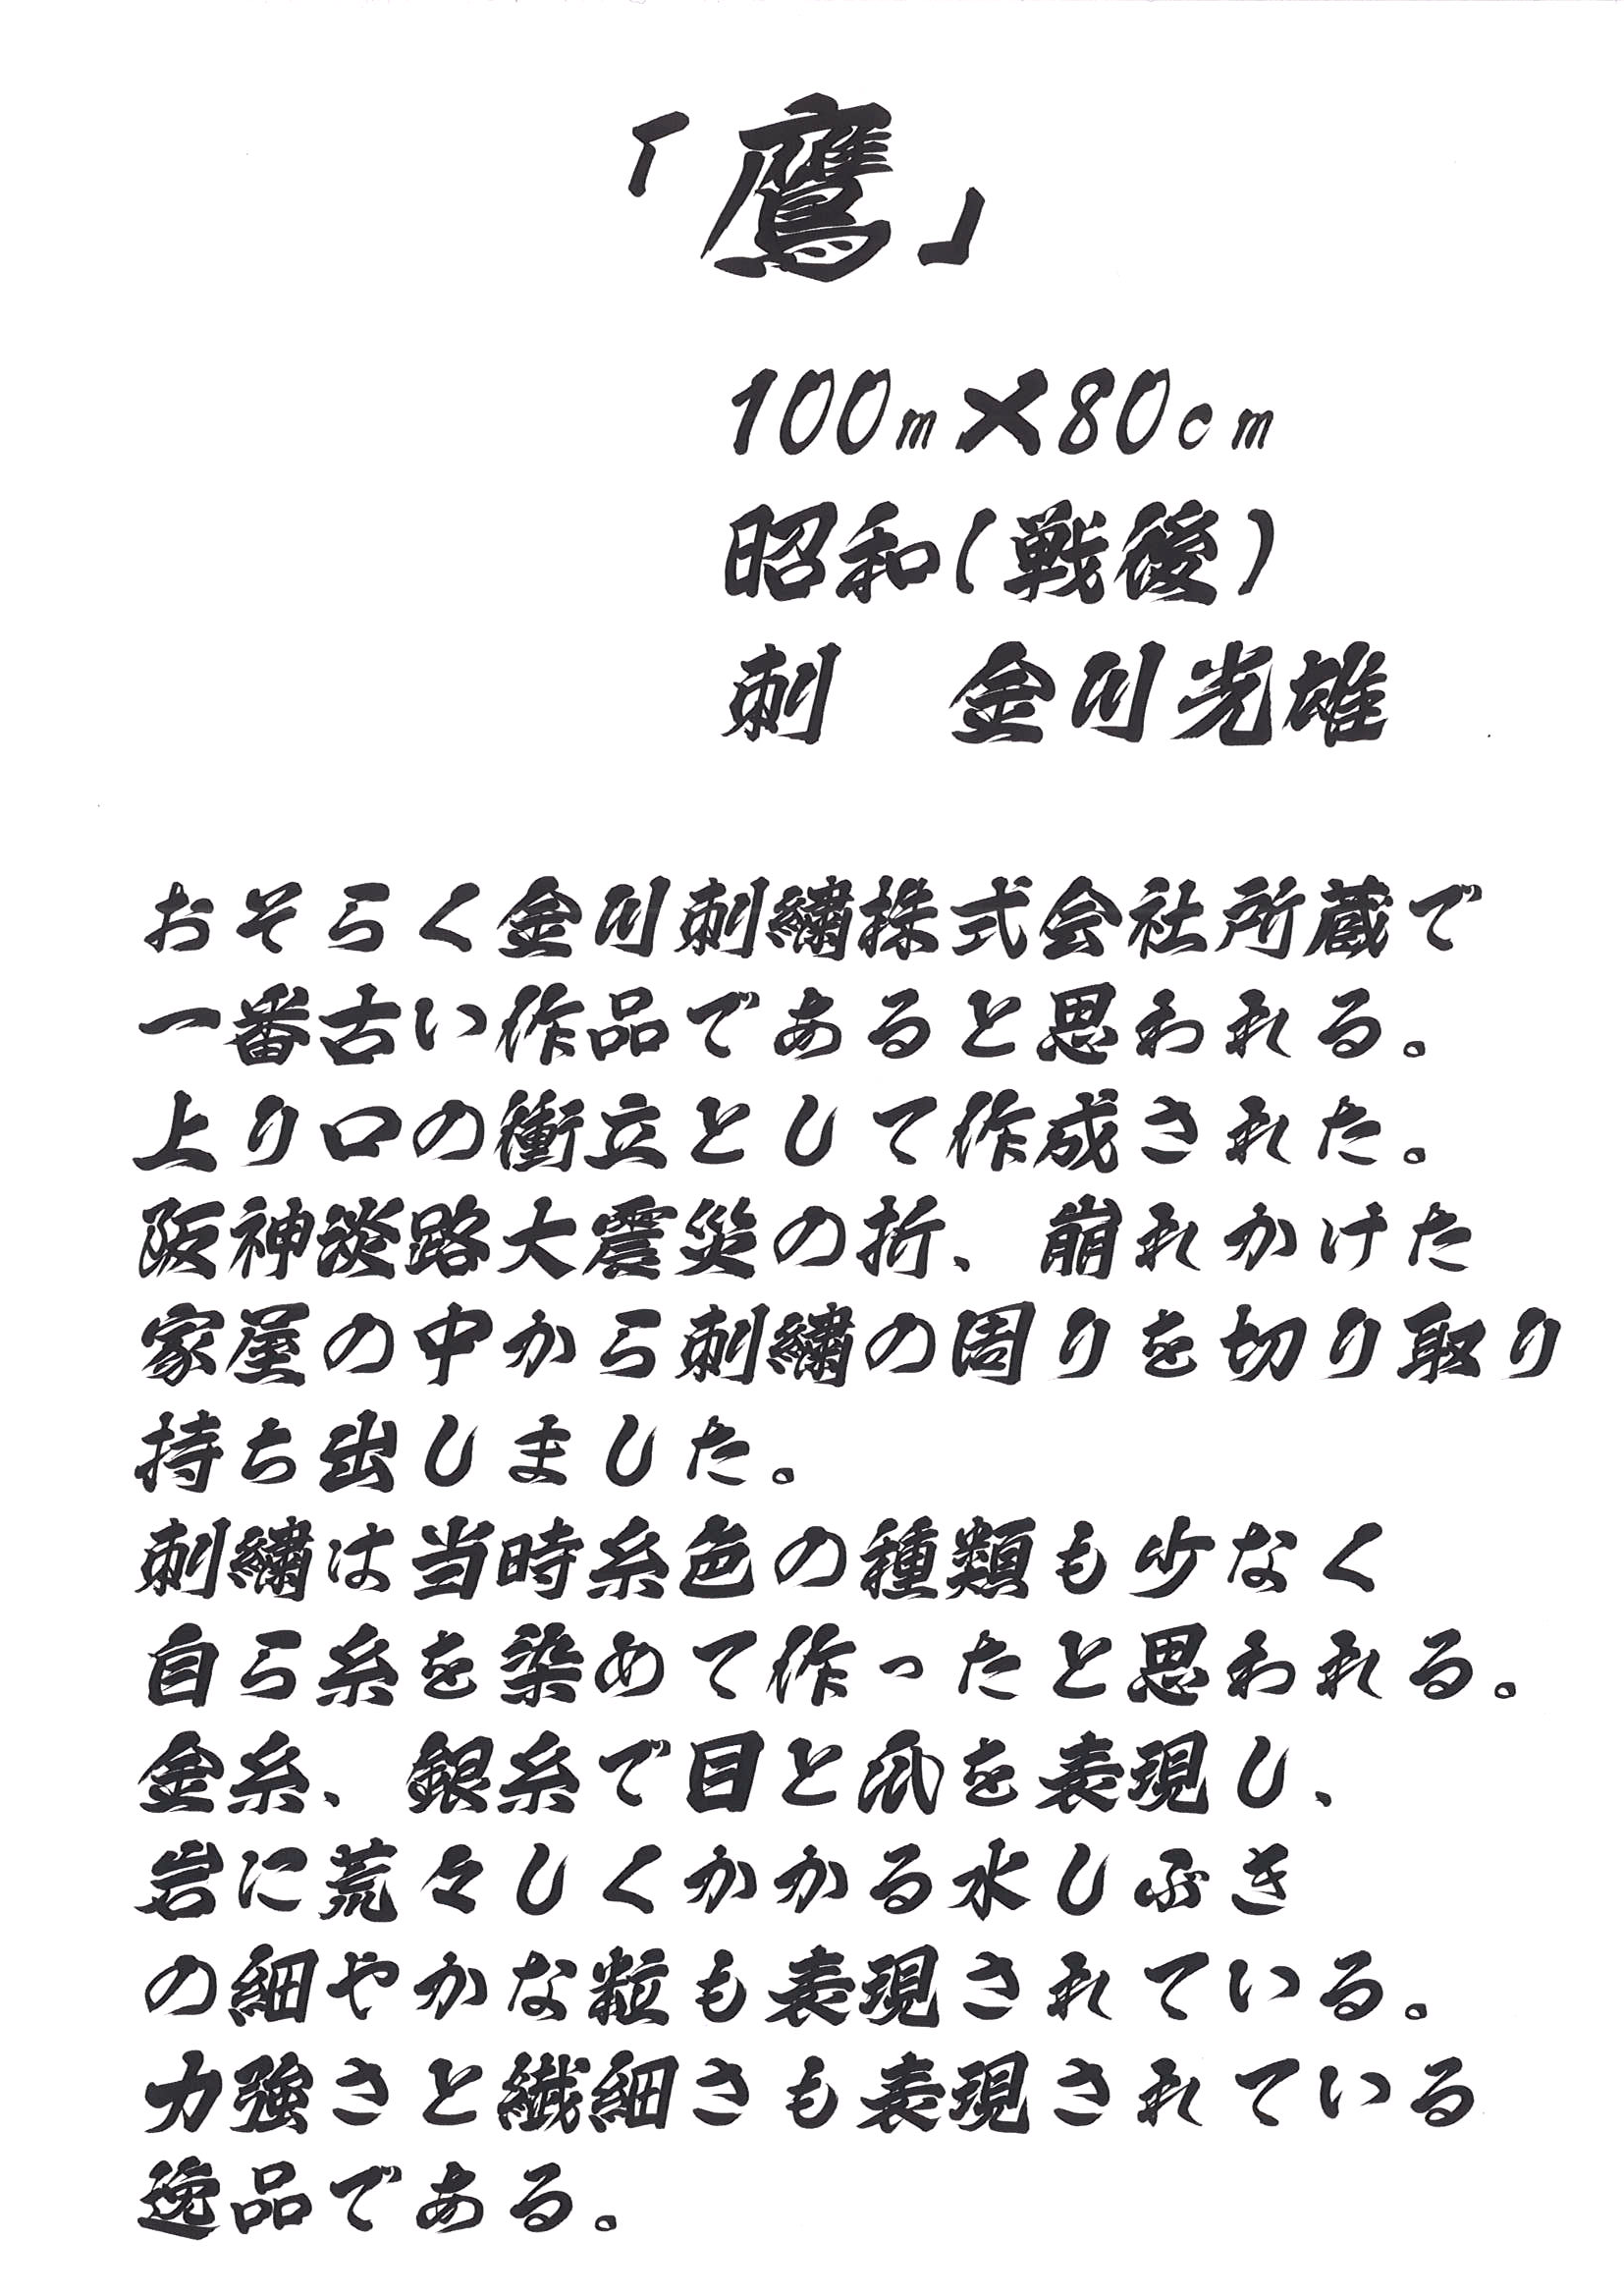 「鷹」
100m×80cm
昭和(戦後)
刺　金川光雄
おそらく金川刺繍株式会社所蔵で
一番古い作品であると思われる。
上り口の衝立として作成された。
阪神淡路大震災の折、崩れかけた
家屋の中から刺繍の周りを切り取り
持ち出しました。
刺繍は当時糸色の種類も少なく
自ら糸を染めて作ったと思われる。
金糸、銀糸で目と爪を表現し、
岩に荒々しくかかる水しぶき
の細やかな粒も表現されている。
力強さと繊細さも表現されている
逸品である。